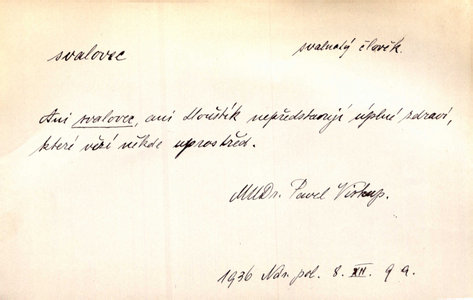 svalovec
svalnatý člověk.
Ani svalovec, ani tloušťík nepředstavují úplné zdraví,
které vězí někde uprostřed.
MUDr. Pavel
1936 Nár. pol. 8. XII. 9 a.